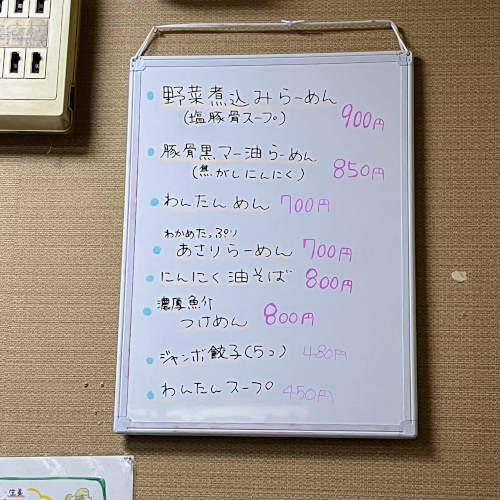 野菜煮込みらーめん
(塩豚骨スープ) 900円
豚骨黒マー油らーめん
(焦がしにんにく) 850円
わんたんめん 700円
わかめたっぷり
あさりらーめん 700円
にんにく油そば 800円
濃厚魚介
つけめん 800円
ジャンボ餃子(5コ) 480円
わんたんスープ 450円